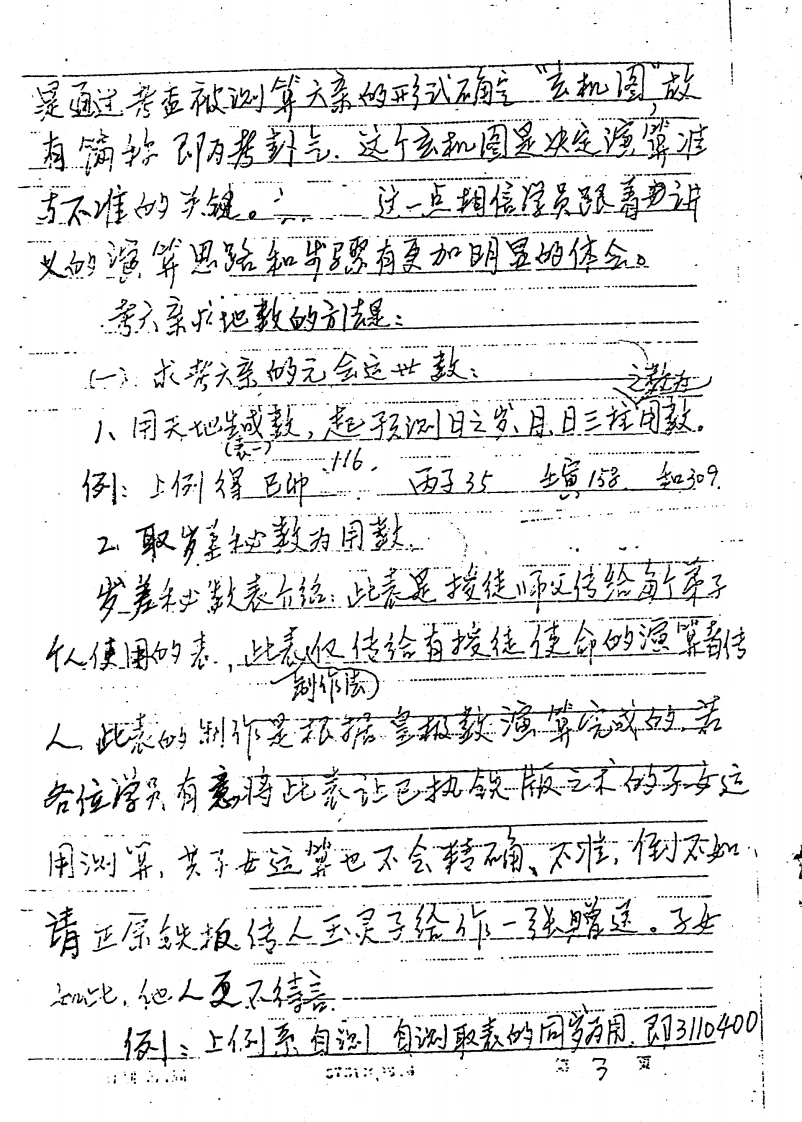 是通过考查被测算六亲的形式确定“玄机图”,故
有简称即为考卦气.这个玄机图是决定演算准
与不准的关键。 这一点相信学员跟着讲
义的演算思路和步骤有更加明显的体会。
考六亲求地数的方法是:
(一)、求考六亲的元会运世数:
之数为
1、用天地生成数,起预测日之岁、月、日三柱用数。
(表一)
例:上例得己卯116. 丙子35 壬寅158. 知309.
2、取岁差秘数为用数.
岁差秘数表介绍:此表是授徒师父传给每个弟子
个人使用的表,此表仅传给有授徒使命的演算者传
制作法
人.此表的制作是根据皇极数演算完成的.若
各位学员有意将此表让已执铁版之术的子女运
用测算,其子女运算也不会精确、不准,倒不如
请正宗铁板传人玉灵子给作一张赠送。子女
如此,他人更不待言.
例:上例系自测 自测取表的同岁为用.即3110400
第 3 页